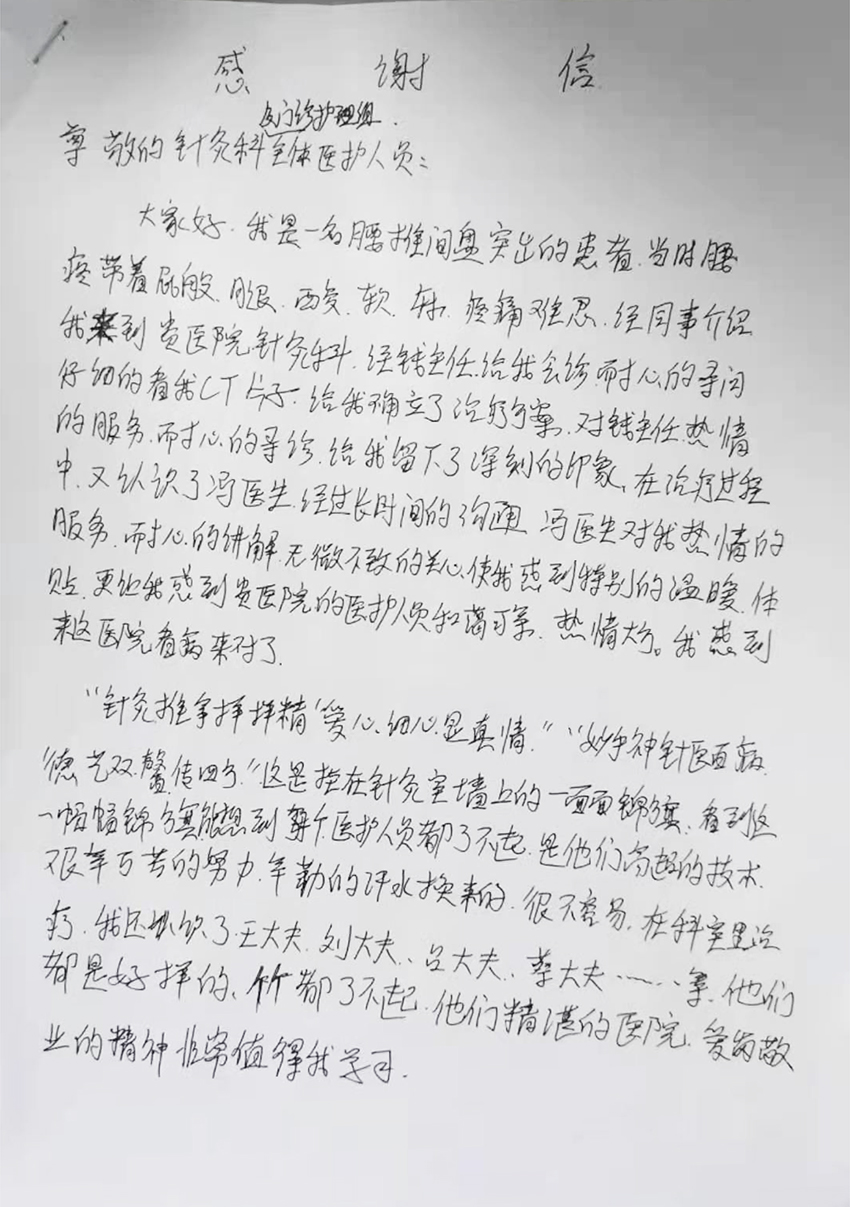 感 谢 信
及门诊护理组.
尊敬的针灸科全体医护人员:
大家好.我是一名腰椎间盘突出的患者,当时腰
疼带着屁股、腿、酸、软、麻.疼痛难忍.经同事介绍
我来到贵医院针灸科.经钱主任给我会诊.耐心的寻问
仔细的看我CT片子.给我确立了治疗方案.对钱主任热情
的服务.耐心的寻诊.给我留下了深刻的印象,在治疗过程
中.又认识了冯医生.经过长时间的沟通 冯医生对我热情的
服务.耐心的讲解.无微不致的关心.使我感到特别的温暖.体
贴.更让我感到贵医院的医护人员和蔼可亲.热情大方。我感到
来这医院看病来对了.
“针灸推拿样样精‘爱心、细心显真情.”“妙手神针医百病.
德艺双馨传四方.”这是挂在针灸室墙上的一面面锦旗.看到这
一幅幅锦旗能想到 医护人员都了不起.是他们高超的技术.
辛万苦的努力.辛勤的汗水换来的.很不容易.在科室里治
疗.我还认识了.王大夫.刘大夫、吕大夫、蔡大夫……等.他们
都是好样的、都了不起.他们精湛的医院.爱岗敬
业的精神非常值得我学习.